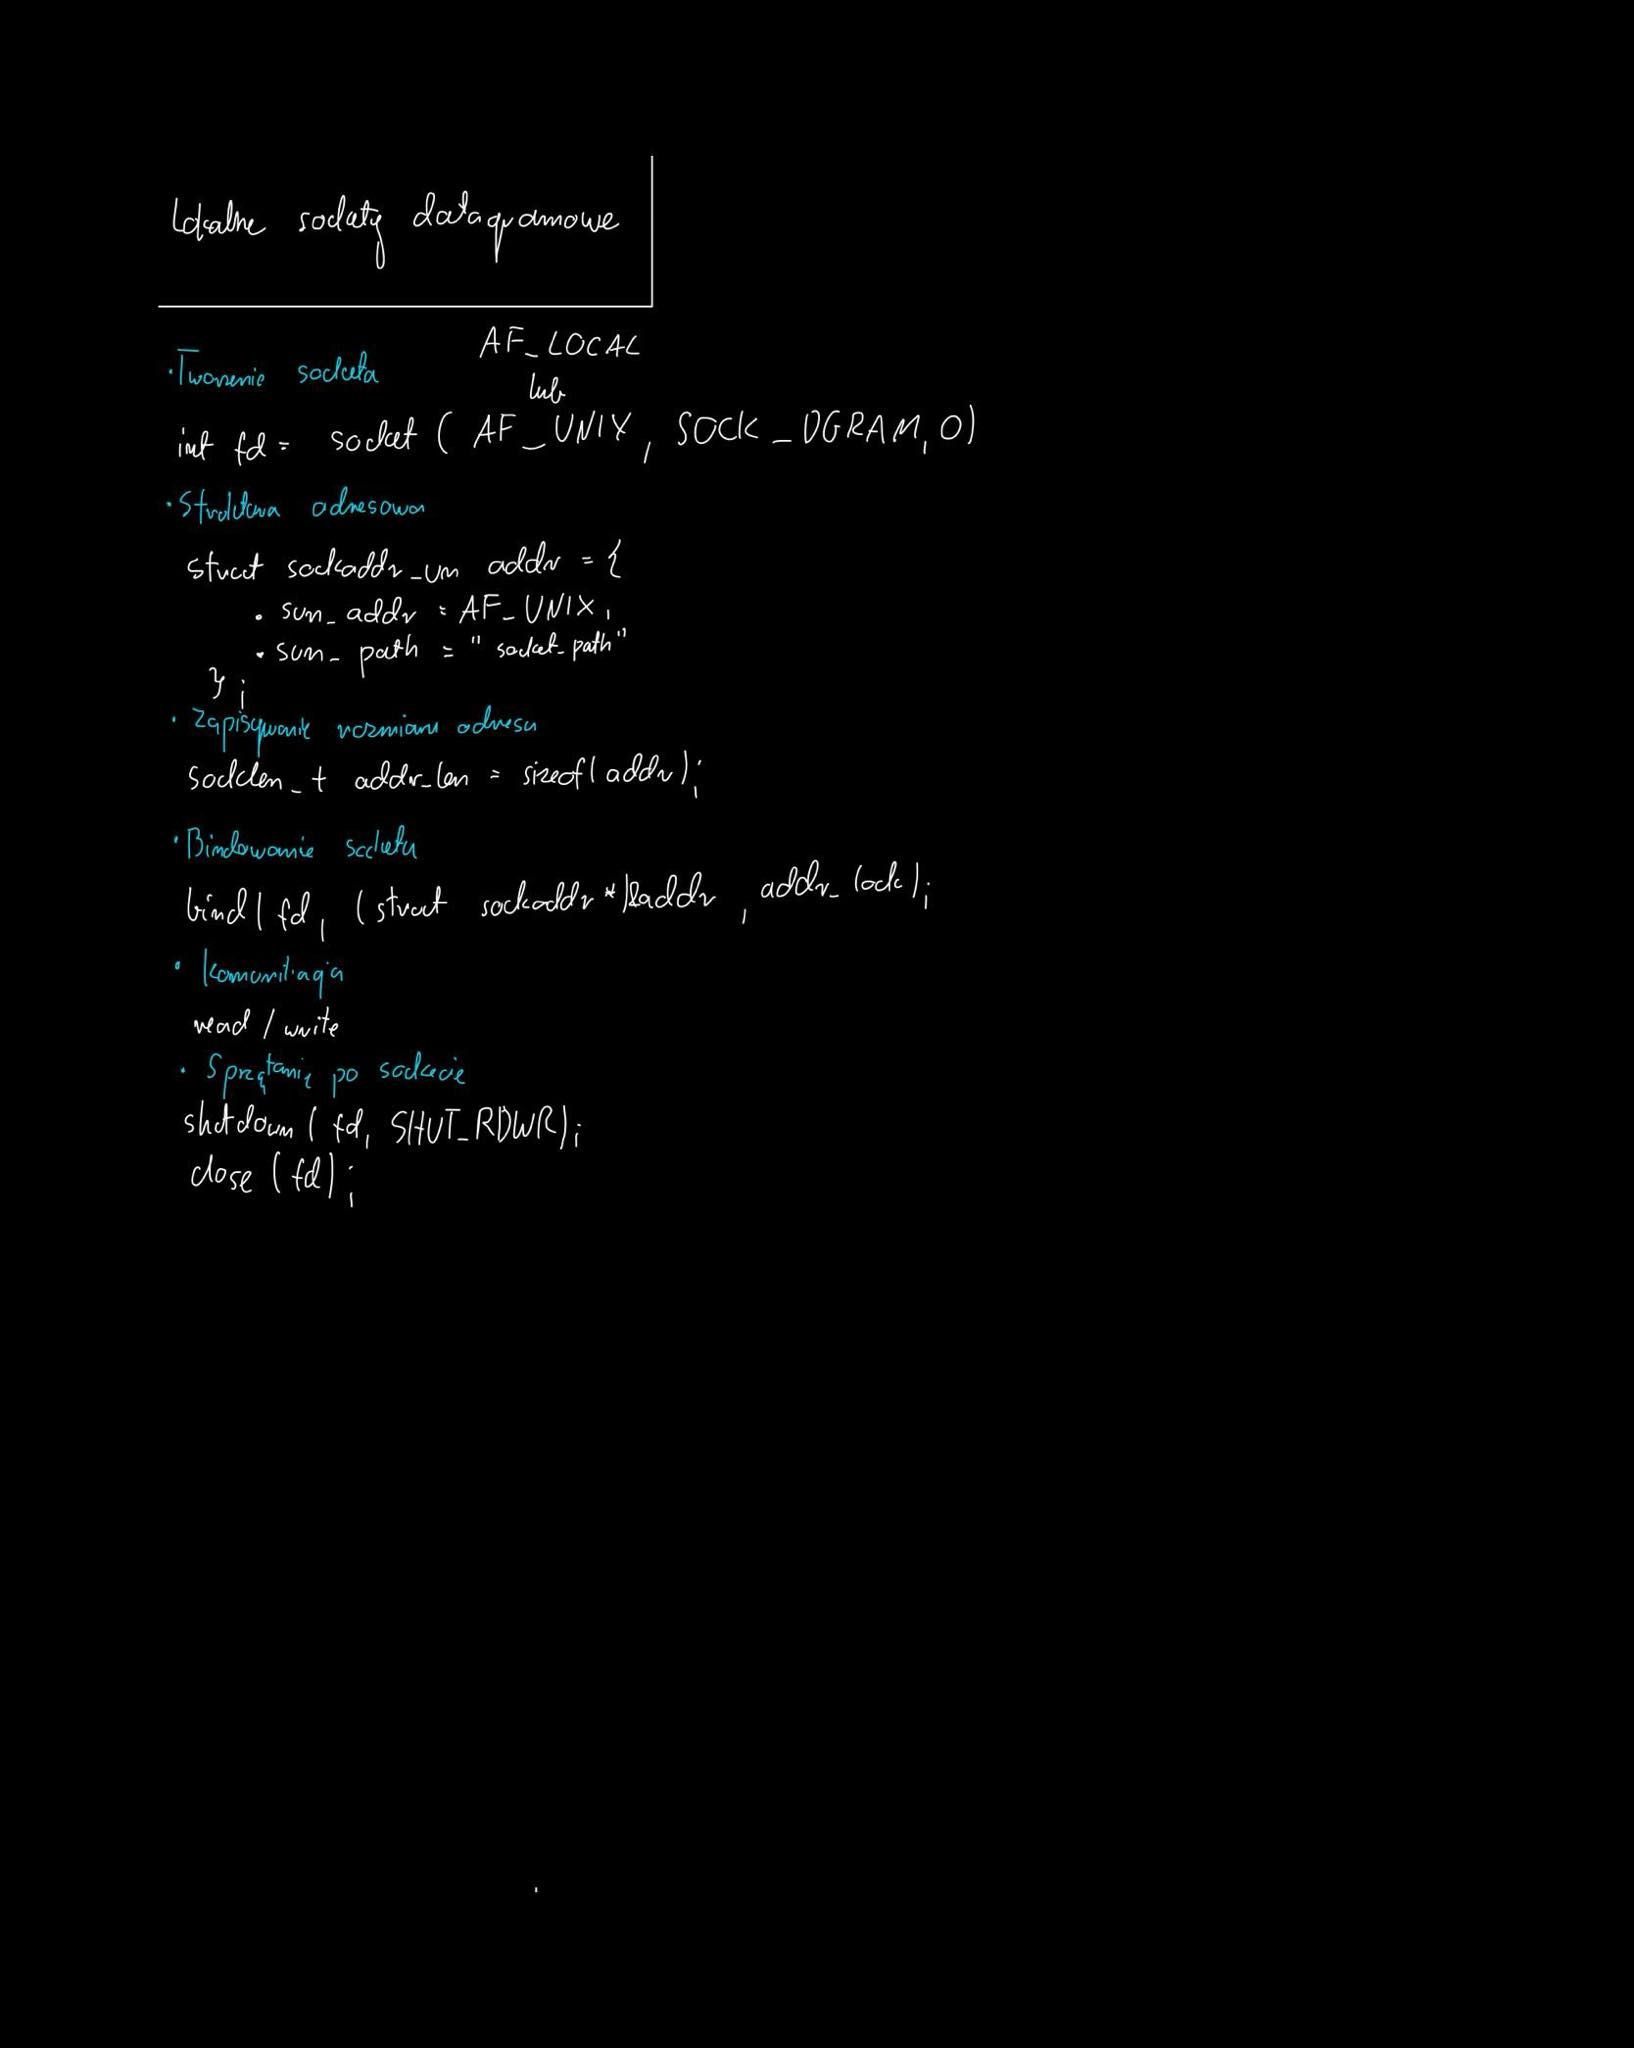 Lokalne sockety datagramowe
AF_LOCAL
• Tworzenie socketa
lub
int fd = socket ( AF_UNIX, SOCK_DGRAM, 0)
• Struktura adresowa
struct sockaddr_un addr = {
. sun_addr = AF_UNIX,
. sun_path = "socket_path"
};
• Zapisywanie rozmiaru adresu
socklen_t addr_len = sizeof(addr);
• Bindowanie socketu
bind( fd, (struct sockaddr*)&addr, addr_lock);
• Komunikacja
read / write
• Sprzątanie po sockecie
shutdown ( fd, SHUT_RDWR);
close (fd);